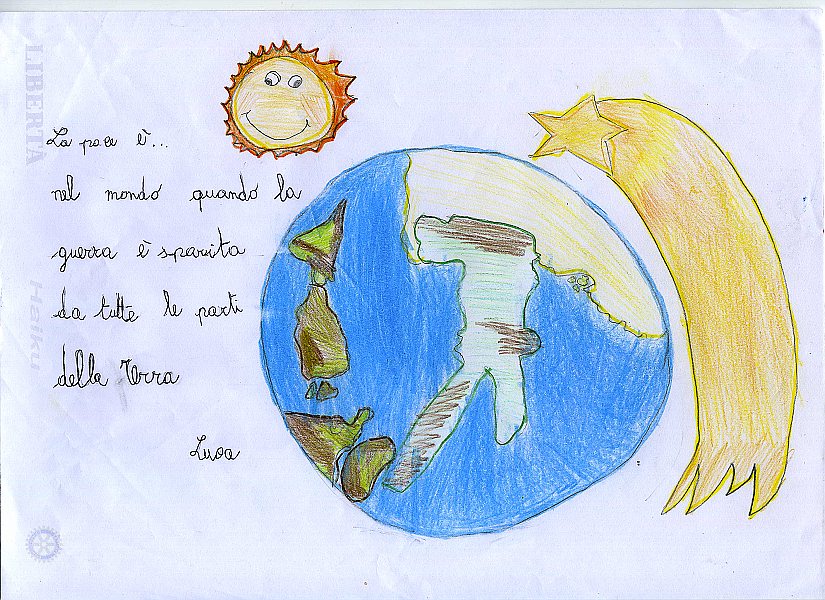 La pace è...
nel mondo quando la
guerra è sparita
da tutte le parti
della Terra
Luca
LIBERTÀ
Haiku